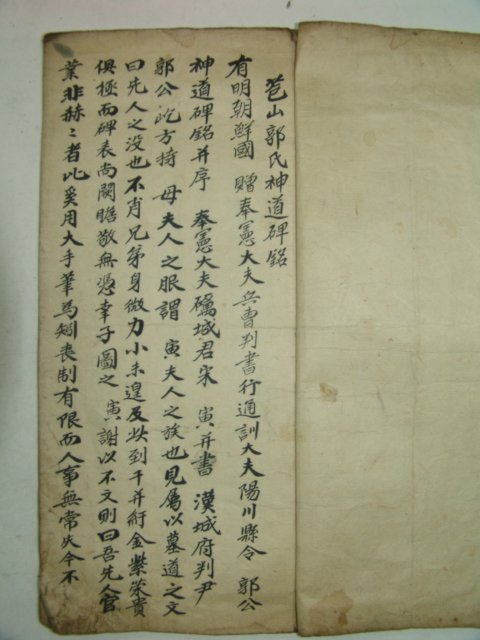 苞山郭氏神道碑銘
有明朝鮮國 贈奉憲大夫兵曹判書行通訓大夫陽川縣令 郭公
神道碑銘并序 奉憲大夫礪城君宋 寅并書 漢城府判尹
郭公屹方持 母夫人之服謂 寅夫人之族也見屬以墓道之文
曰先人之没也不肖兄弟身微力小未遑及此到于并紆金紫榮貴
俱極而碑表尚闕瞻敬無憑幸子圖之 寅謝以不文則曰吾先人官
業非赫〻者比奚用大手筆為矧喪制有限而人事無常失今不